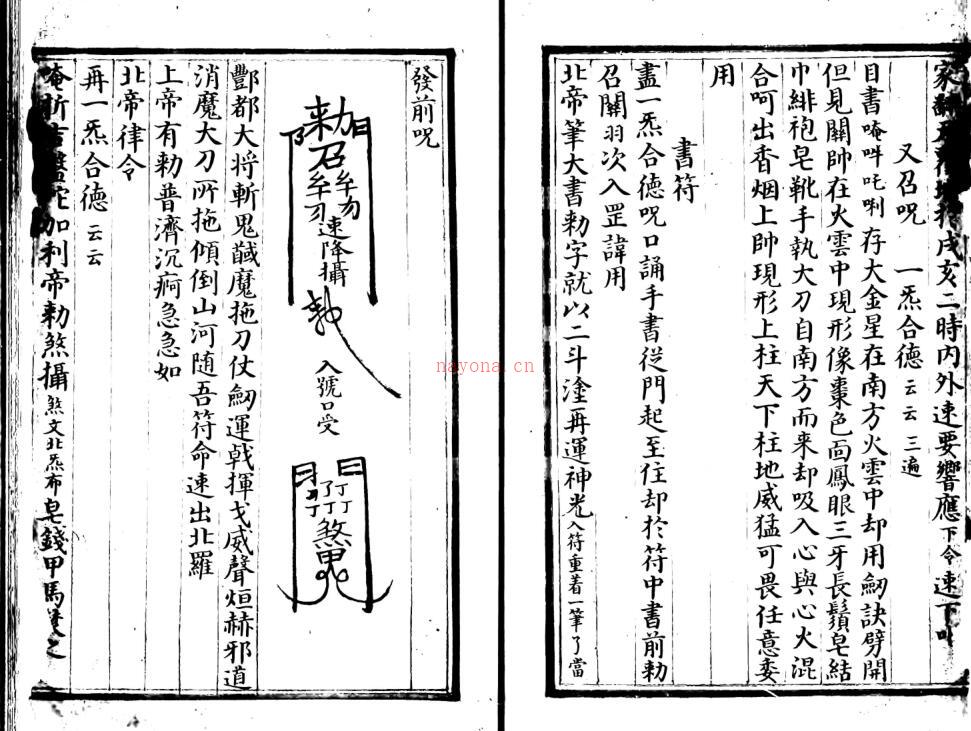 家 二時内外速要響應下令速下
又召呪　一炁合德云云三遍
目書唵吽吒唎存大金星在南方火雲中却用劒訣劈開
但見關帥在火雲中現形像棗色面鳳眼三牙長鬚皂結
巾緋袍皂靴手執大刀自南方而来却吸入心與心火混
合呵出香烟上帥現形上柱天下柱地威猛可畏任意委
用
書符
盡一炁合德呪口誦手書從門起至住却於符中書前勅
召關羽次入罡諱用
北帝筆大書勅字就以二斗塗再運神光入符重着一筆了當
發前呪
勅召
速降攝
入號口受
煞鬼
酆都大将斬鬼馘魔拖刀仗劒運戟揮戈威聲烜赫邪道
消魔大刀所拖傾倒山河随吾符命速出北羅
上帝有勅普濟沉痾急急如
北帝律令
再一炁合德云云
唵 吉 加利帝勅煞攝煞文北炁布皂錢甲馬
nayona.cn